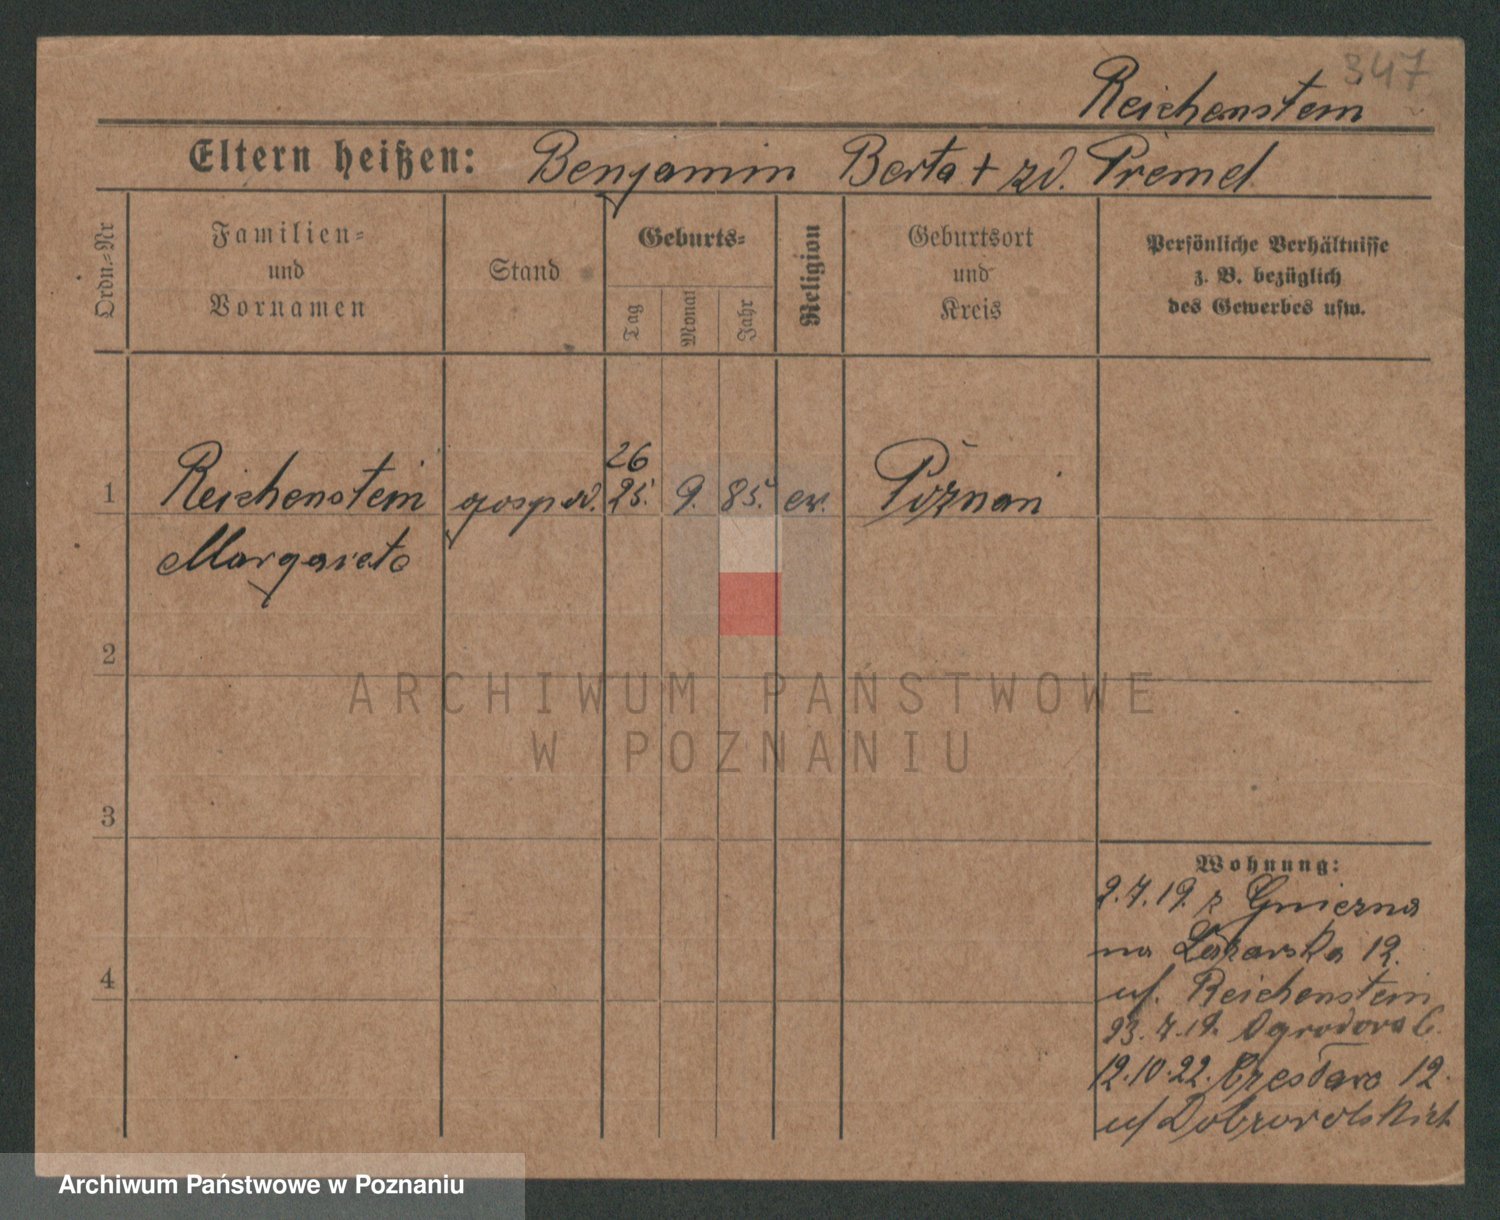 347
Reichenstein
Eltern heißen: Benjamin Berta + zd. Premel
Ordn.-Nr
Familien- und Vornamen
Stand
Geburts-
Tag
Monat
Jahr
Religion
Geburtsort und Kreis
Persönliche Verhältnisse
z. B. bezüglich
des Gewerbes usw.
26
1 Reichenstein gospod. 25. 9. 85. ew. Poznań
Margareta
2
3
4
Wohnung:
2.7.19. z Gniezna
na Łazarska 12.
u/. Reichenstein
23.7.19. Ogrodowa 6.
12.10.22. 12.
u/ Dobrowolskich
ARCHIWUM PAŃSTWOWE
W POZNANIU
Archiwum Państwowe w Poznaniu